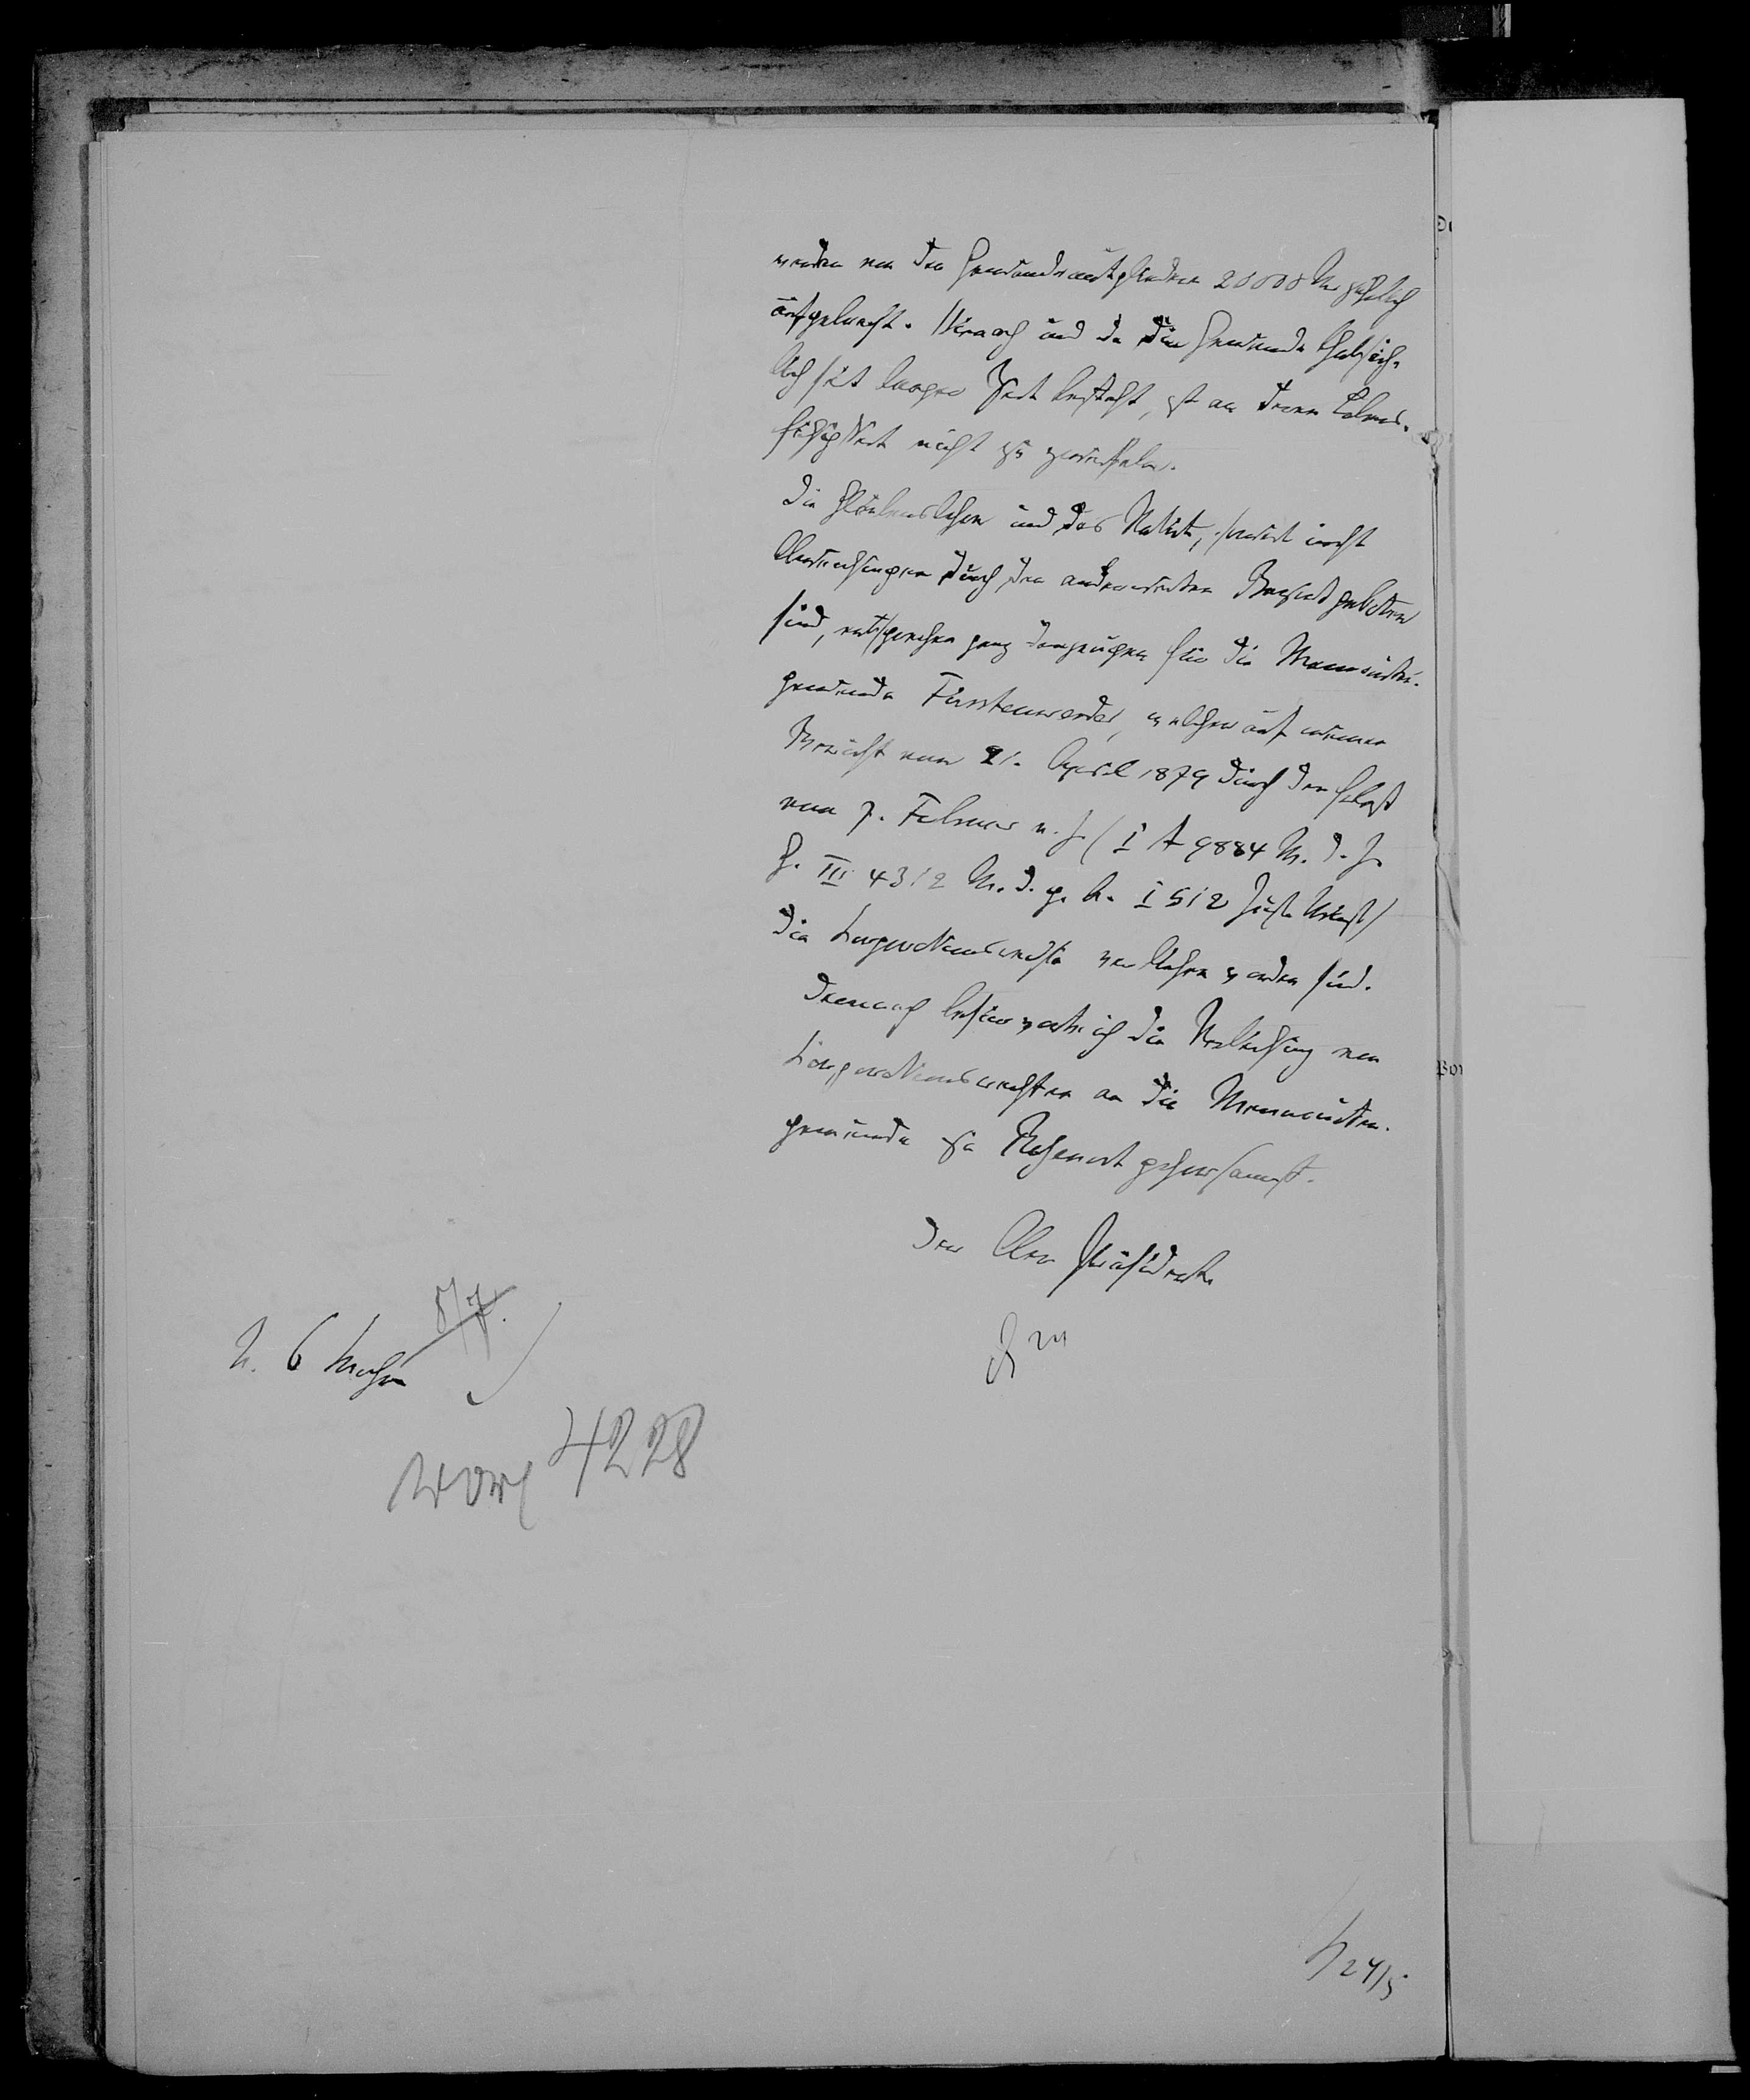 werden von den Gemeindemitgliedern 20000 M. jährlich
aufgebracht. Hiernach und da die Gemeinde thatsäch-
lich seit langer Zeit besteht, ist an deren Lebens-
fähigkeit nicht zu zweifeln.
Die Glaubenslehre und das Statut, soweit nicht
Abweichungen durch den anderweiten Bezirk geboten
sind, entsprechen ganz denjenigen für die Mennoniten-
gemeinde Fürstenwerder, welcher auf meinen
Bericht vom 21. April 1879 durch den Erlaß
vom 7. Februar v. J. (I A 9884 M. d. J.
G. III 4312 M. d. g. A. I 512 Just. Minist)
die Korporationsrechte verliehen worden sind.
Demnach befürworte ich die Verleihung von
Korporationsrechten an die Mennoniten-
gemeinde zu Rosenort gehorsamst.
Der Ober Präsident
N. 6 Wochen
8/7.
4228
24/5